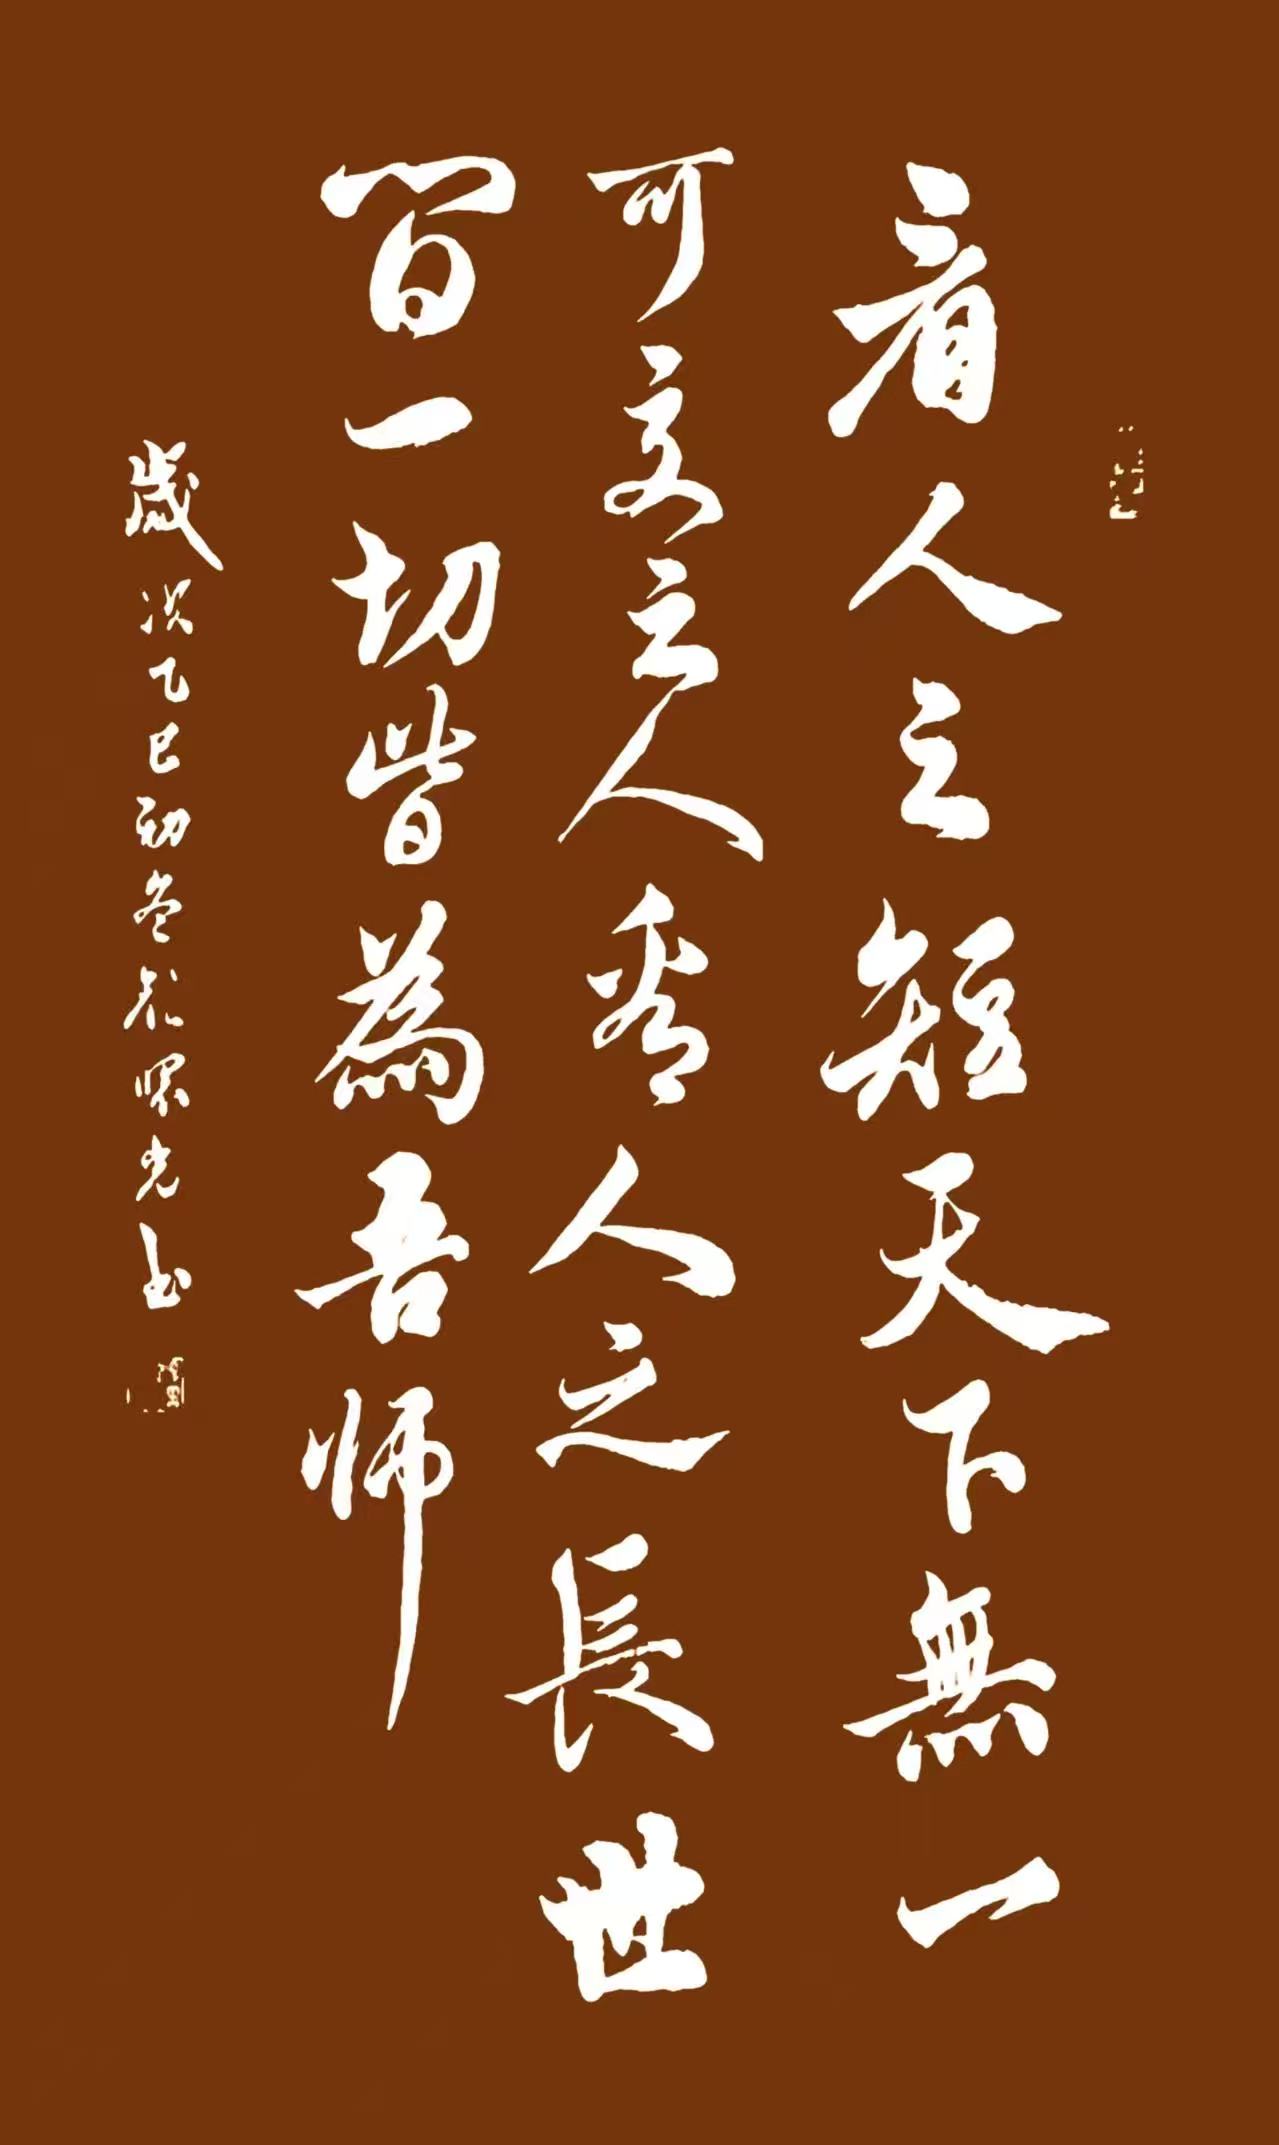 看人之短天下無一
可交之人看人之長世
間一切皆為吾師
歲次乙巳初冬於曙光书